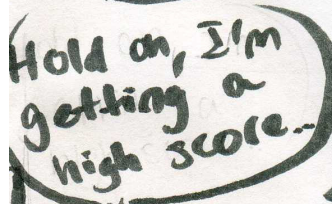 Hold on, I'm
getting a
high score...